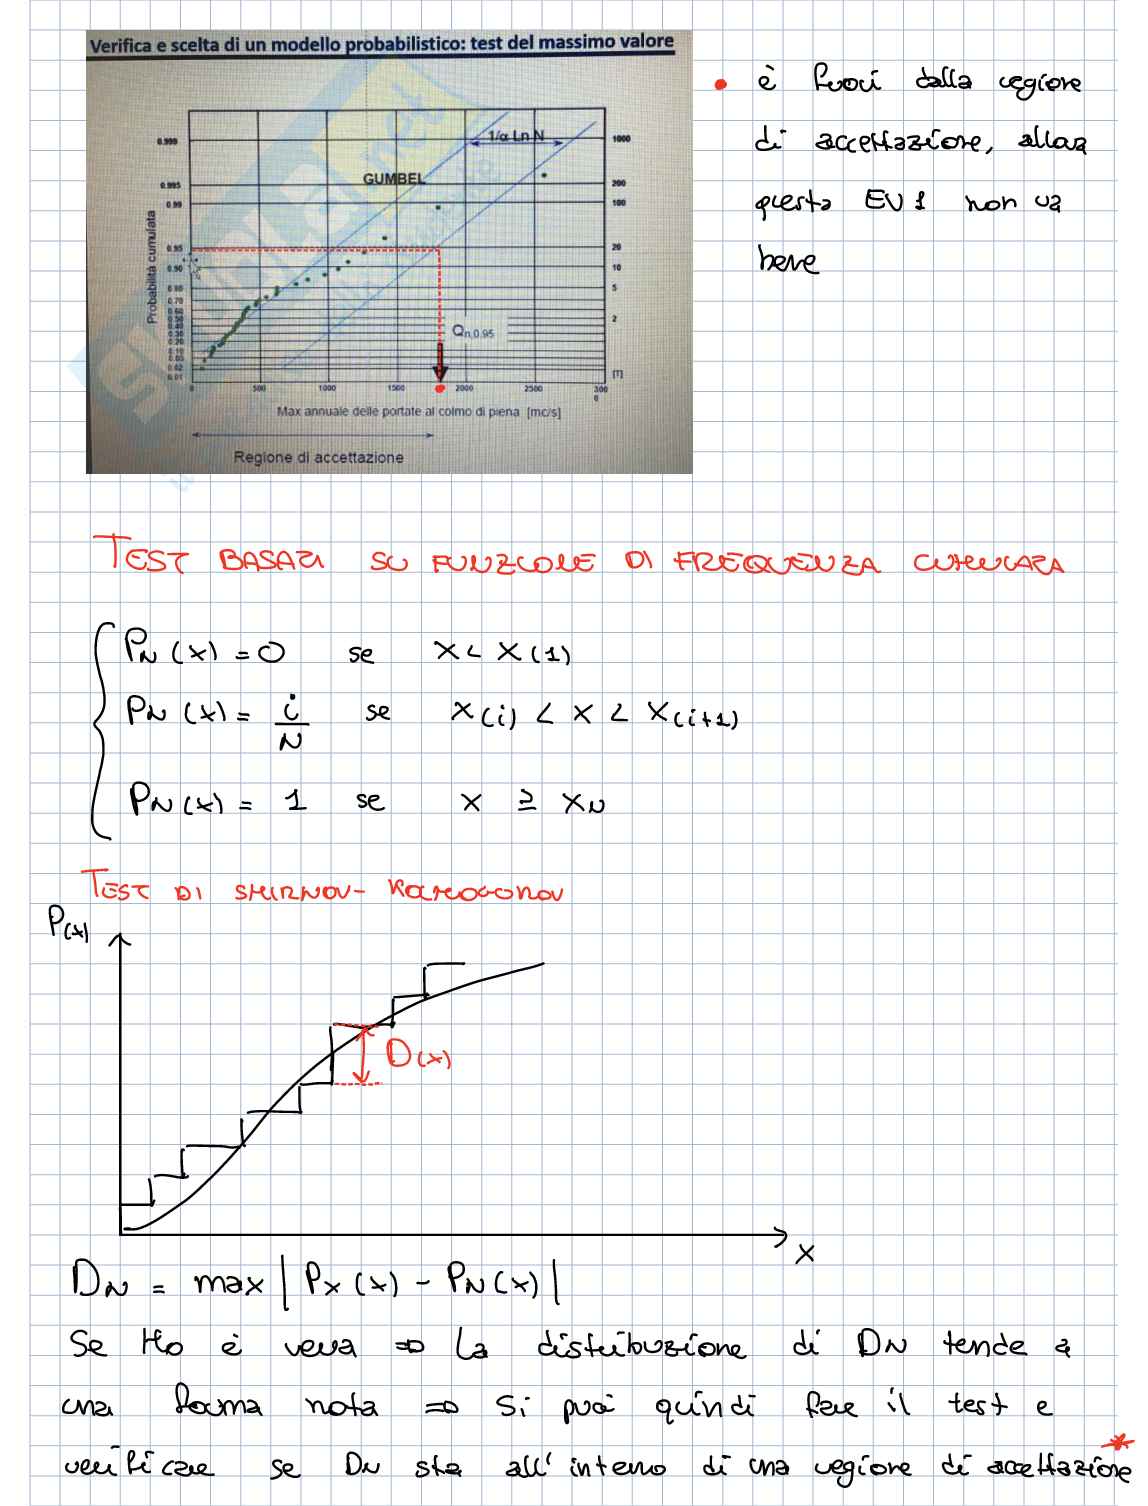 Verifica e scelta di un modello probabilistico: test del massimo valore
• è fuori dalla regione
di accettazione, allora
questa EV1 non va
bene
1/α Ln N
GUMBEL
Probabilità cumulata
0.999
0.995
0.99
0.95
0.90
0.80
0.70
0.60
0.50
0.40
0.30
0.20
0.10
0.05
0.02
0.01
1000
200
100
20
10
5
2
[T]
Qn,0.95
0
500
1000
1500
2000
2500
300
0
Max annuale delle portate al colmo di piena [mc/s]
Regione di accettazione
TEST BASATI SU FUNZIONE DI FREQUENZA CUMULATA
PN(x) = 0 se x < x(1)
PN(x) = i/N se x(i) < x < x(i+1)
PN(x) = 1 se x ≥ xN
TEST DI SMIRNOV-KOLMOGOROV
P(x)
D(x)
x
DN = max | PX(x) - PN(x) |
Se H0 è vera ⇒ La distribuzione di DN tende a
una forma nota ⇒ Si può quindi fare il test e
verificare se DN sta all'interno di una regione di accettazione*